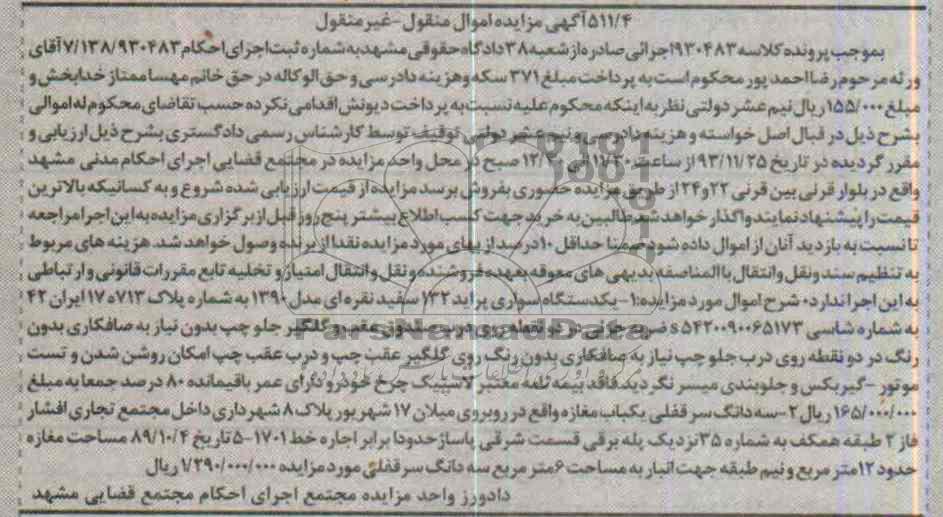 ۵۱۱/۴ آگهی مزایده اموال منقول-غیر منقول
بموجب پرونده کلاسه ۹۳۰۴۸۳ اجرائی صادره از شعبه ۳۸ دادگاه حقوقی مشهد به شماره ثبت اجرای احکام ۷/۱۳۸/۹۳۰۴۸۳ آقای
ورثه مرحوم رضا احمد پور محکوم است به پرداخت مبلغ ۳۷۱ سکه و هزینه دادرسی و حق الوکاله در حق خانم مهسا ممتاز خدابخش و
مبلغ ۱۵۵/۰۰۰ ریال نیم عشر دولتی نظر به اینکه محکوم علیه نسبت به پرداخت دیونش اقدامی نکرده حسب تقاضای محکوم له اموالی
بشرح ذیل در قبال اصل خواسته و هزینه دادرسی و نیم عشر دولتی توقیف توسط کارشناس رسمی دادگستری بشرح ذیل ارزیابی و
مقرر گردیده در تاریخ ۹۳/۱۱/۲۵ از ساعت ۱۱/۳۰ الی ۱۲/ صبح در محل واحد مزایده در مجتمع قضایی اجرای احکام مدنی مشهد
واقع در بلوار قرنی بین قرنی ۲۲ و ۲۴ از طریق مزایده حضوری بفروش برسد مزایده از قیمت ارزیابی شده شروع و به کسانیکه بالاترین
قیمت را پیشنهاد نمایند واگذار خواهد شد طالبین به خرید جهت کسب اطلاع بیشتر پنج روز قبل از برگزاری مزایده به این اجرا مراجعه
تا نسبت به بازدید آنان از اموال داده شود ضمنا حداقل ۱۰ درصد از بهای مورد مزایده نقدا از برنده وصول خواهد شد. هزینه های مربوط
به تنظیم سند و نقل و انتقال باالمناصفه بدیهی های معوقه بعهده فروشنده و نقل و انتقال امتیاز و تخلیه تابع مقررات قانونی و ارتباطی
به این اجرا ندارد، شرح اموال مورد مزایده: ۱- یکدستگاه سواری پراید ۱۳۲ سفید نقره ای مدل ۱۳۹۰ به شماره پلاک ۷۱۳ ه ۱۷ ایران ۴۲
به شماره شاسی s ۵۴۲۰۰۹۰۰۶۵۱۷۳ در دو نقطه روی درب صندوق عقب و گلگیر جلو چپ بدون نیاز به صافکاری بدون
رنگ در دو نقطه روی درب جلو چپ نیاز به صافکاری بدون رنگ روی گلگیر عقب چپ و درب عقب چپ امکان روشن شدن و تست
موتور -گیربکس و جلوبندی میسر نگردید فاقد بیمه نامه معتبر لاستیک چرخ خودرو دارای عمر باقیمانده ۸۰ درصد جمعا به مبلغ
۱۶۵/۰۰۰/۰۰۰ ریال ۲- سه دانگ سرقفلی یکباب مغازه واقع در روبروی میلان ۱۷ شهریور پلاک ۸ شهرداری داخل مجتمع تجاری افشار
فاز ۲ طبقه همکف به شماره ۳۵ نزدیک پله برقی قسمت شرقی پاساژ حدودا برابر اجاره خط ۱۷۰۱-۵ تاریخ ۸۹/۱۰/۴ مساحت مغازه
حدود ۱۲ متر مربع و نیم طبقه جهت انبار به مساحت ۶ متر مربع سه دانگ سرقفلی مورد مزایده ۱/۲۹۰/۰۰۰/۰۰۰ ریال
دادورز واحد مزایده مجتمع اجرای احکام مجتمع قضایی مشهد
ParsNamadData